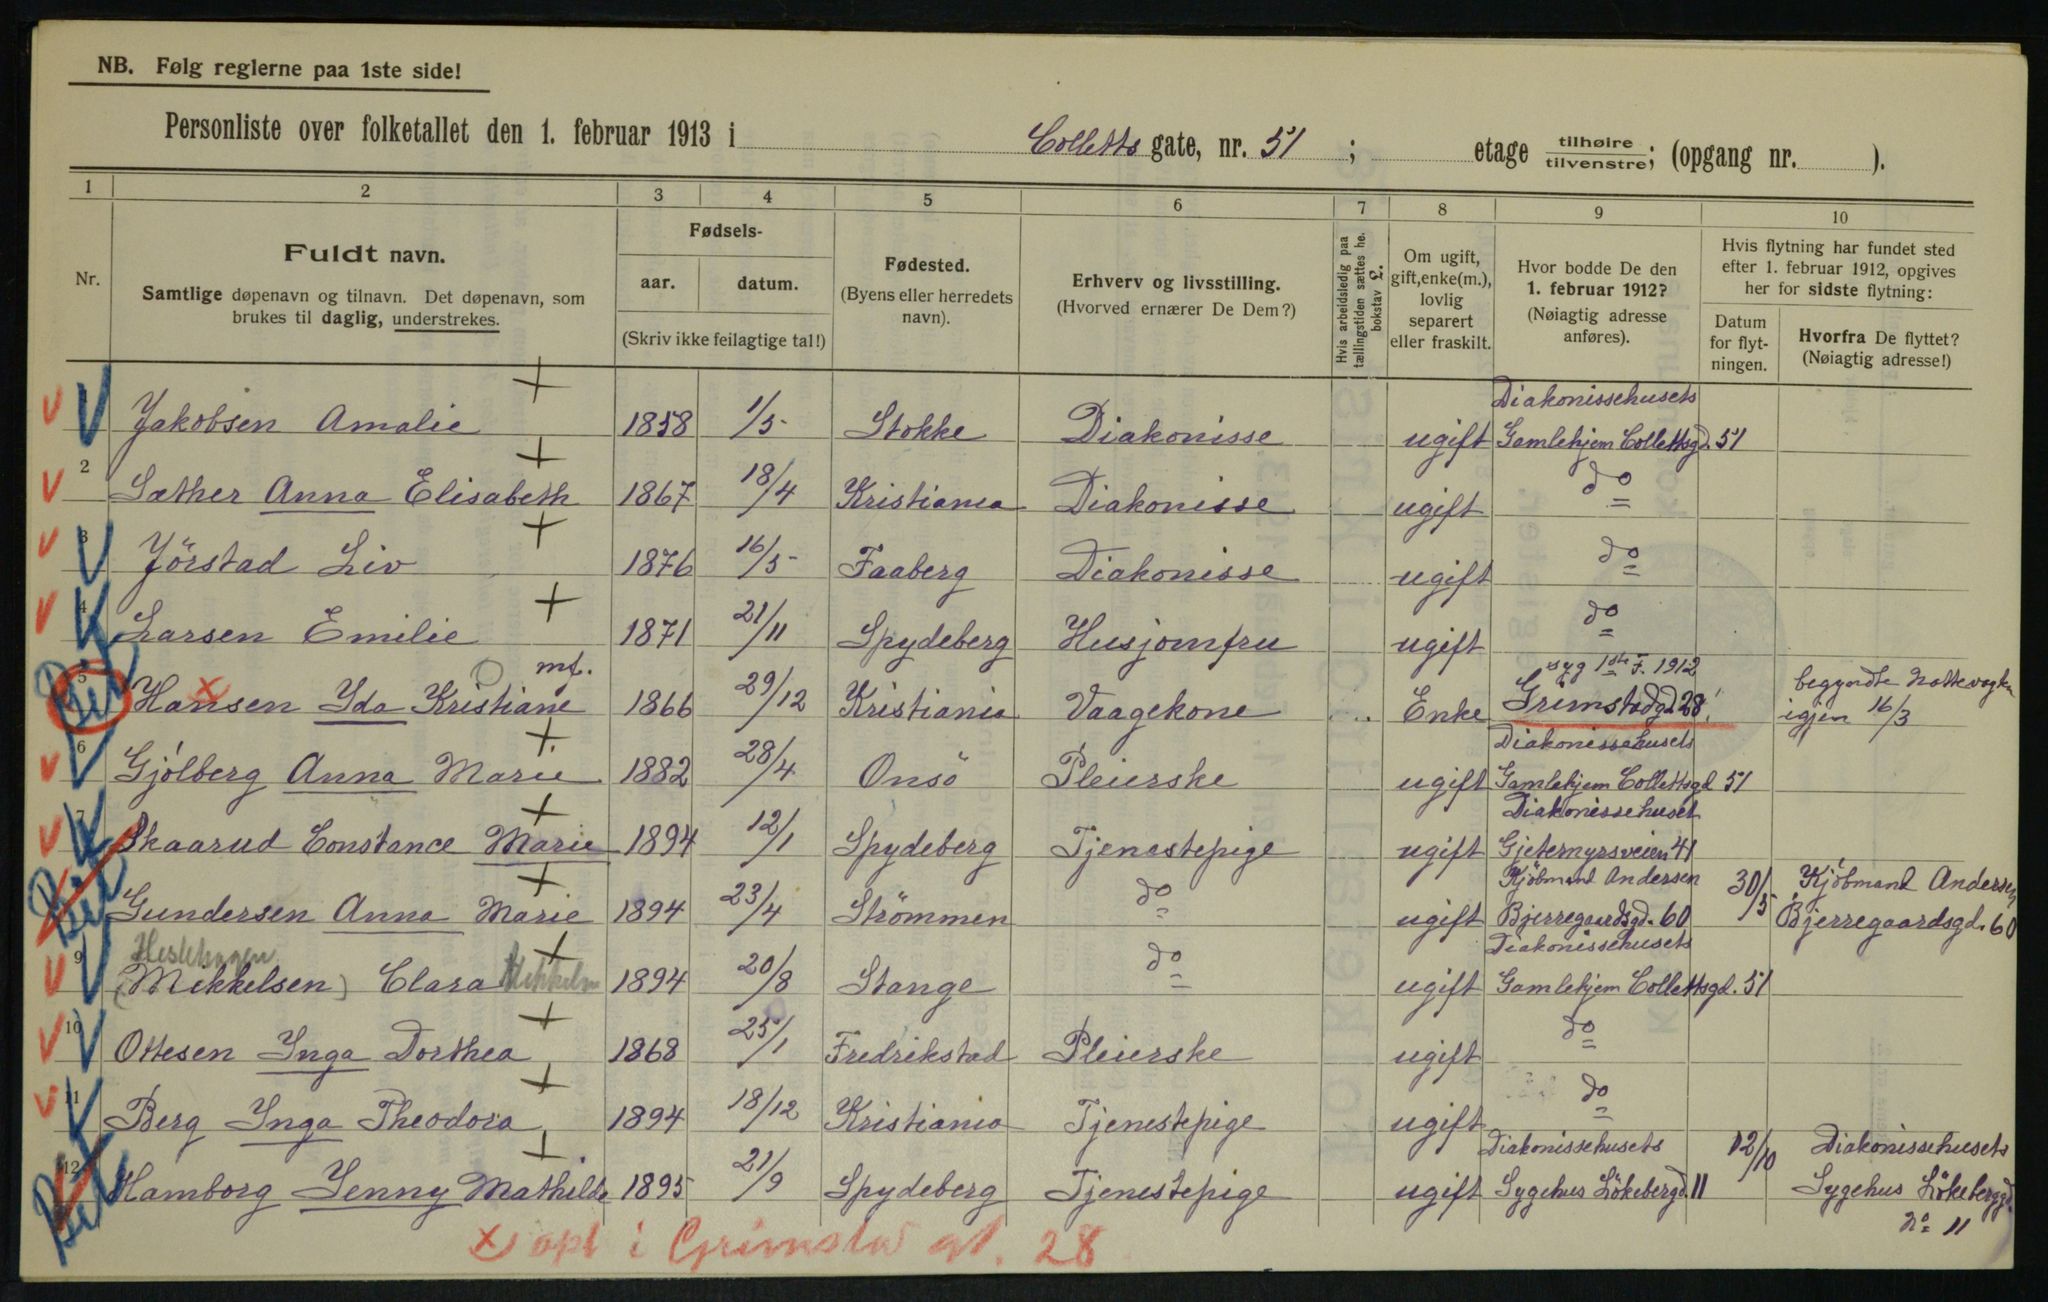 NB. Følg reglerne paa 1ste side!
Personliste over folketallet den 1. februar 1913 i Colletts gate, nr. 51 ; etage tilhøire tilvenstre; (opgang nr. ).
1 2 3 4 5 6 7 8 9 10
Nr.
Fuldt navn.
Samtlige døpenavn og tilnavn. Det døpenavn, som
brukes til daglig, understrekes.
Fødsels-
aar. datum.
(Skriv ikke feilagtige tal!)
Fødested.
(Byens eller herredets
navn).
Erhverv og livsstilling.
(Hvorved ernærer De Dem?)
Hvis arbeidsledig paa
tællingstiden sættes he.
bokstav L.
Om ugift,
gift, enke(m.),
lovlig
separert
eller fraskilt.
Hvor bodde De den
1. februar 1912?
(Nøiagtig adresse
anføres).
Hvis flytning har fundet sted
efter 1. februar 1912, opgives
her for sidste flytning:
Datum
for flyt-
ningen.
Hvorfra De flyttet?
(Nøiagtig adresse!)
Diakonissehusets
Jakobsen Amalie 1858 1/5 Stokke Diakonisse ugift Gamlehjem Collettsgd. 51
2 Sæther Anna Elisabeth 1867 18/4 Kristiania Diakonisse ugift do
3 Jörstad Liv 1876 16/5 Faaberg Diakonisse ugift do
4 Larsen Emilie 1871 21/11 Spydeberg Husjomfru ugift do
mf. syg 1ste F. 1912 begyndte Nattevagten
5 Hansen Ida Kristiane 1866 29/12 Kristiania Vaagekone Enke Grimstadgd 28 igjen 16/3
Diakonissehusets
6 Gjölberg Anna Marie 1882 28/4 Onsö Pleierske ugift Gamlehjem Collettsgd 51
Diakonissehuset
7 Skaarud Constance Marie 1894 12/1 Spydeberg Tjenestepige ugift Gjetemyrsveien 41
Kjöbmand Andersen 30/5 Kjöbmand Andersen
Gundersen Anna Marie 1894 23/4 Strömmen do ugift Bjerregaardsgd. 60 Bjerregaardsgd. 60
Diakonissehusets
9 (Mikkelsen) Clara Mikkelsen 1894 20/8 Stange do ugift Gamlehjem Collettsgd. 51
10 Ottesen Inga Dorthea 1868 25/1 Fredrikstad Pleierske ugift do
11 Berg Inga Theodora 1894 18/12 Kristiania Tjenestepige ugift do
Diakonissehusets 12/10 Diakonissehusets
12 Hamborg Jenny Mathilde 1895 21/9 Spydeberg Tjenestepige ugift Sygehus Lökebergd 11 Sygehus Lökeberggd.
No 11
x opt i Grimstad gt. 28